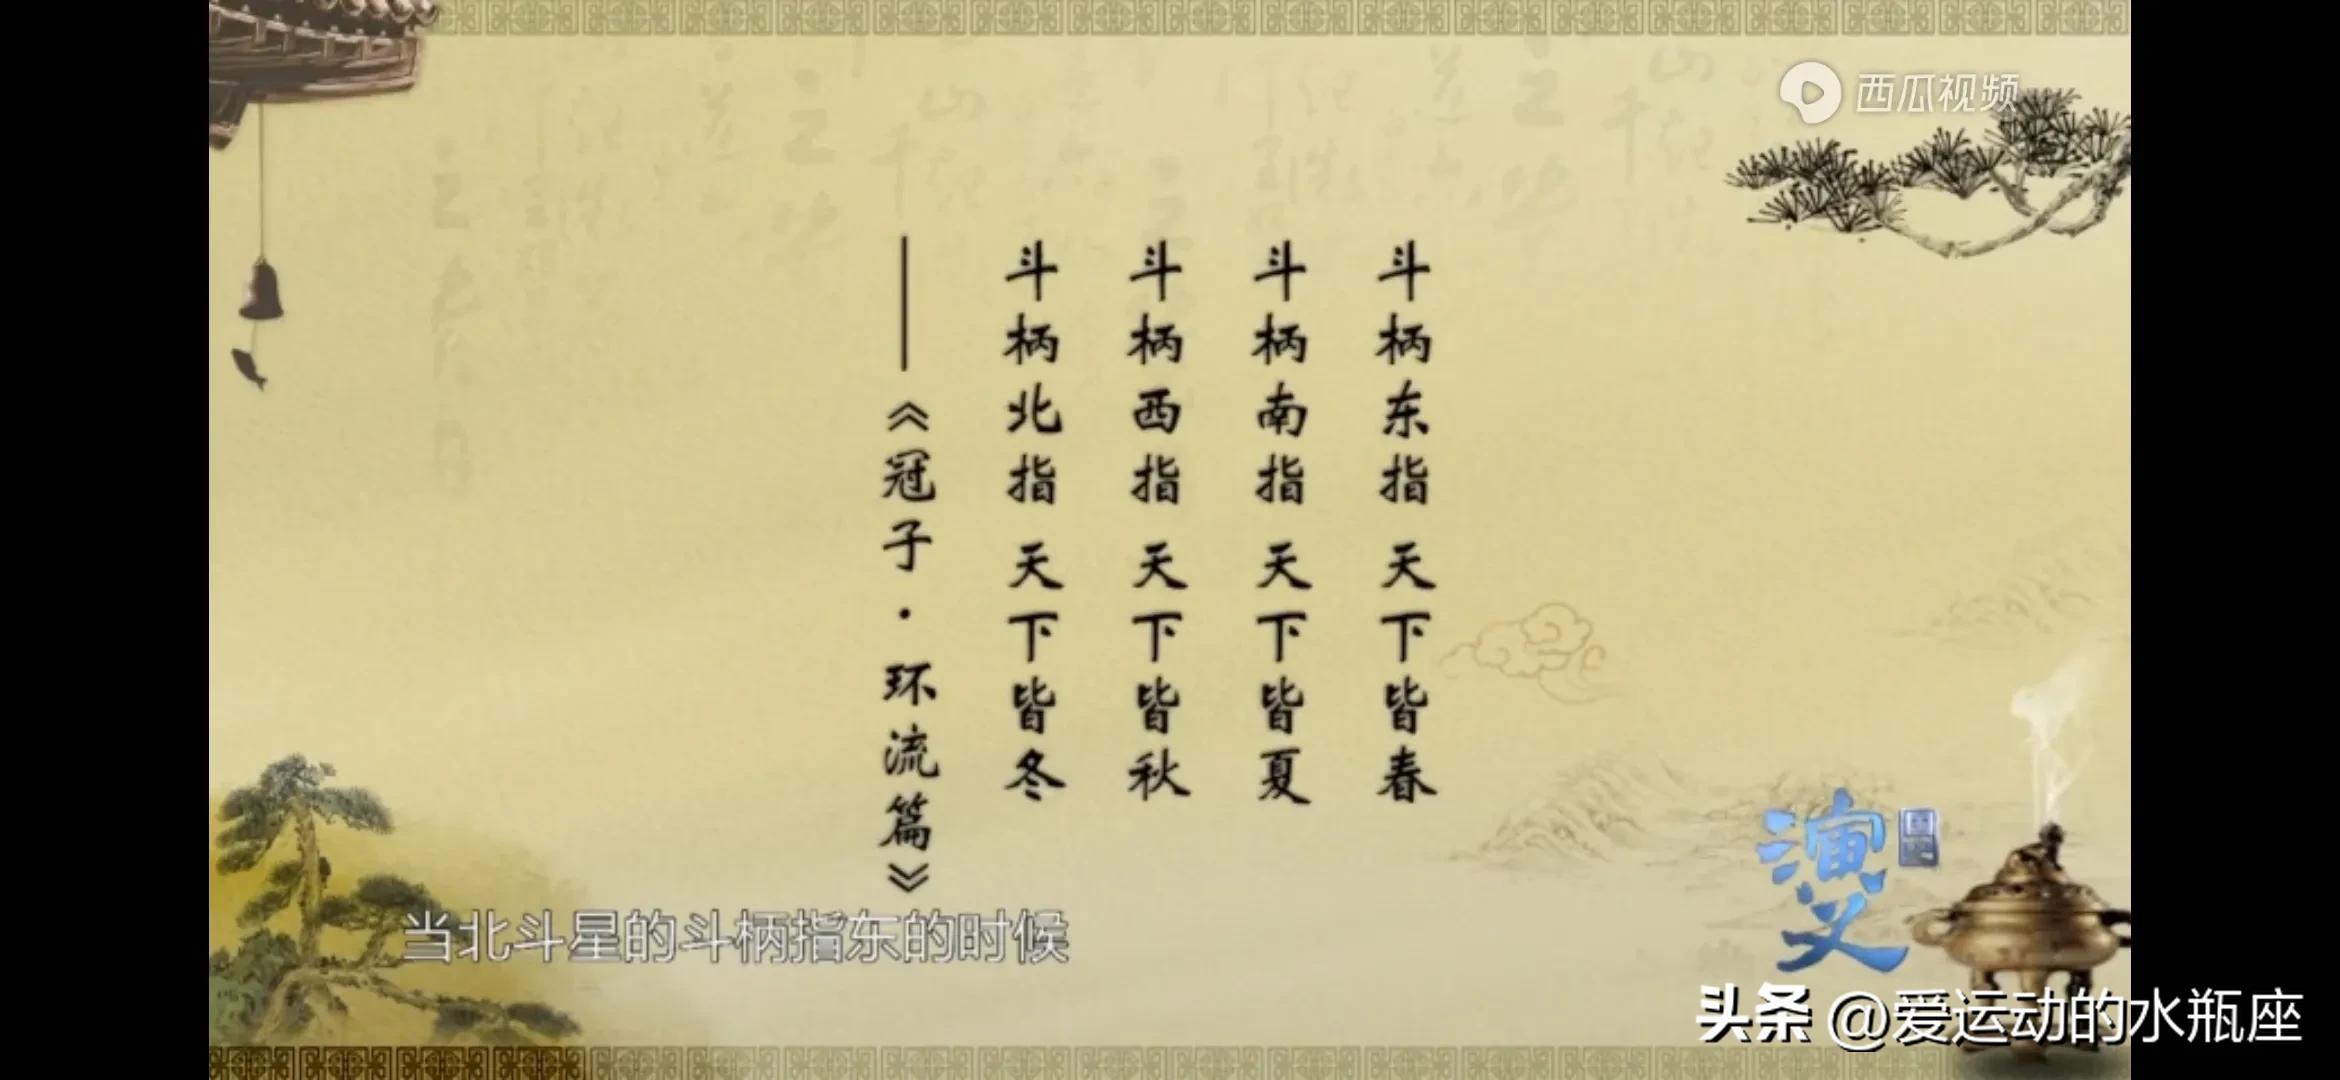 西瓜视频
斗柄东指 天下皆春
斗柄南指 天下皆夏
斗柄西指 天下皆秋
斗柄北指 天下皆冬
——《冠子·环流篇》
当北斗星的斗柄指东的时候
演义
头条 @爱运动的水瓶座